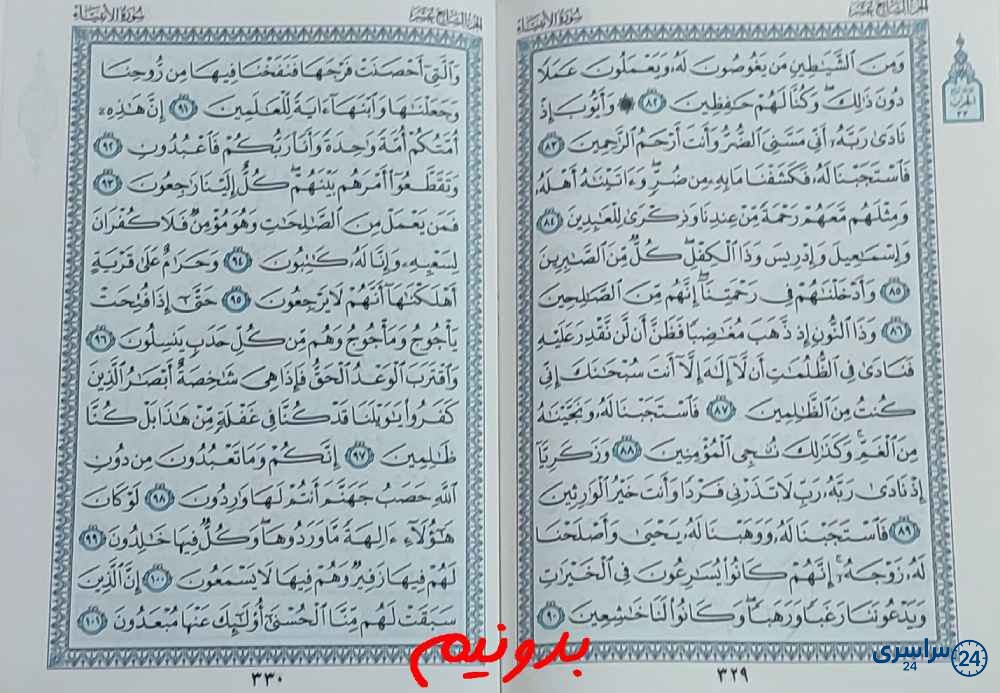 الجزء السابع عشر
سورة الأنبياء
وَمِنَ الشَّيَٰطِينِ مَن يَغُوصُونَ لَهُۥ وَيَعْمَلُونَ عَمَلًا
دُونَ ذَٰلِكَ ۖ وَكُنَّا لَهُمْ حَٰفِظِينَ ٨٢ ۞ وَأَيُّوبَ إِذْ
نَادَىٰ رَبَّهُۥٓ أَنِّى مَسَّنِىَ الضُّرُّ وَأَنتَ أَرْحَمُ الرَّٰحِمِينَ ٨٣
فَٱسْتَجَبْنَا لَهُۥ فَكَشَفْنَا مَا بِهِۦ مِن ضُرٍّ ۖ وَءَاتَيْنَٰهُ أَهْلَهُۥ
وَمِثْلَهُم مَّعَهُمْ رَحْمَةً مِّنْ عِندِنَا وَذِكْرَىٰ لِلْعَٰبِدِينَ ٨٤
وَإِسْمَٰعِيلَ وَإِدْرِيسَ وَذَا الْكِفْلِ ۖ كُلٌّ مِّنَ الصَّٰبِرِينَ
٨٥ وَأَدْخَلْنَٰهُمْ فِى رَحْمَتِنَآ ۖ إِنَّهُم مِّنَ الصَّٰلِحِينَ
٨٦ وَذَا النُّونِ إِذ ذَّهَبَ مُغَٰضِبًا فَظَنَّ أَن لَّن نَّقْدِرَ عَلَيْهِ
فَنَادَىٰ فِى الظُّلُمَٰتِ أَن لَّآ إِلَٰهَ إِلَّآ أَنتَ سُبْحَٰنَكَ إِنِّى
كُنتُ مِنَ الظَّٰلِمِينَ ٨٧ فَٱسْتَجَبْنَا لَهُۥ وَنَجَّيْنَٰهُ
مِنَ الْغَمِّ ۚ وَكَذَٰلِكَ نُۨجِى الْمُؤْمِنِينَ ٨٨ وَزَكَرِيَّآ
إِذْ نَادَىٰ رَبَّهُۥ رَبِّ لَا تَذَرْنِى فَرْدًا وَأَنتَ خَيْرُ الْوَٰرِثِينَ
٨٩ فَٱسْتَجَبْنَا لَهُۥ وَوَهَبْنَا لَهُۥ يَحْيَىٰ وَأَصْلَحْنَا
لَهُۥ زَوْجَهُۥٓ ۚ إِنَّهُمْ كَانُوا۟ يُسَٰرِعُونَ فِى الْخَيْرَٰتِ
وَيَدْعُونَنَا رَغَبًا وَرَهَبًا ۖ وَكَانُوا۟ لَنَا خَٰشِعِينَ ٩٠
٣٢٩
الجزء السابع عشر
سورة الأنبياء
وَالَّتِىٓ أَحْصَنَتْ فَرْجَهَا فَنَفَخْنَا فِيهَا مِن رُّوحِنَا
وَجَعَلْنَٰهَا وَٱبْنَهَآ ءَايَةً لِّلْعَٰلَمِينَ ٩١ إِنَّ هَٰذِهِۦٓ
أُمَّتُكُمْ أُمَّةً وَٰحِدَةً وَأَنَا۠ رَبُّكُمْ فَٱعْبُدُونِ ٩٢
وَتَقَطَّعُوٓا۟ أَمْرَهُم بَيْنَهُمْ ۖ كُلٌّ إِلَيْنَا رَٰجِعُونَ ٩٣
فَمَن يَعْمَلْ مِنَ الصَّٰلِحَٰتِ وَهُوَ مُؤْمِنٌ فَلَا كُفْرَانَ
لِسَعْيِهِۦ وَإِنَّا لَهُۥ كَٰتِبُونَ ٩٤ وَحَرَٰمٌ عَلَىٰ قَرْيَةٍ
أَهْلَكْنَٰهَآ أَنَّهُمْ لَا يَرْجِعُونَ ٩٥ حَتَّىٰٓ إِذَا فُتِحَتْ
يَأْجُوجُ وَمَأْجُوجُ وَهُم مِّن كُلِّ حَدَبٍ يَنسِلُونَ ٩٦
وَٱقْتَرَبَ الْوَعْدُ الْحَقُّ فَإِذَا هِىَ شَٰخِصَةٌ أَبْصَٰرُ الَّذِينَ
كَفَرُوا۟ يَٰوَيْلَنَا قَدْ كُنَّا فِى غَفْلَةٍ مِّنْ هَٰذَا بَلْ كُنَّا
ظَٰلِمِينَ ٩٧ إِنَّكُمْ وَمَا تَعْبُدُونَ مِن دُونِ
اللَّهِ حَصَبُ جَهَنَّمَ أَنتُمْ لَهَا وَٰرِدُونَ ٩٨ لَوْ كَانَ
هَٰٓؤُلَآءِ ءَالِهَةً مَّا وَرَدُوهَا ۖ وَكُلٌّ فِيهَا خَٰلِدُونَ ٩٩
لَهُمْ فِيهَا زَفِيرٌ وَهُمْ فِيهَا لَا يَسْمَعُونَ ١٠٠ إِنَّ الَّذِينَ
سَبَقَتْ لَهُم مِّنَّا الْحُسْنَىٰٓ أُو۟لَٰٓئِكَ عَنْهَا مُبْعَدُونَ ١٠١
٣٣٠
بدونیم
سراسری 24
24